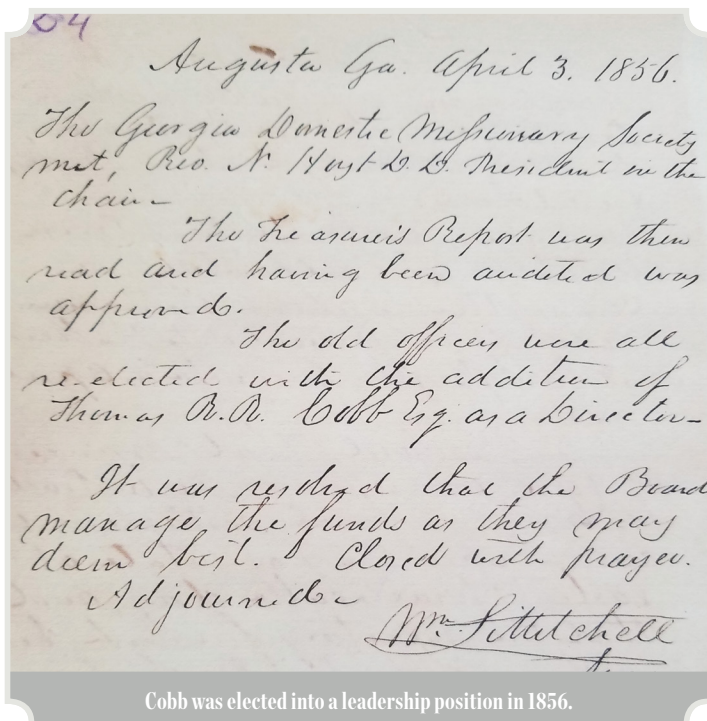 64
Augusta Ga. April 3. 1856.
The Georgia Domestic Missionary Society
met, Rev. N. Hoyt D.D. President in the
chair –
The Treasurer's Report was then
read and having been audited was
approved.
The old officers were all
re-elected with the addition of
Thomas R.R. Cobb Esq. as a Director –
It was resolved that the Board
manage the funds as they may
deem best. Closed with prayer.
Adjourned –
Wm. L. Mitchell
Cobb was elected into a leadership position in 1856.